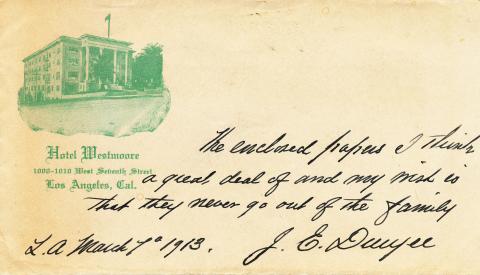 Hotel Westmoore
1008-1010 West Seventh Street
Los Angeles, Cal.
The enclosed papers I think
a great deal of and my wish is
that they never go out of the family
L.A March 7º 1913.
J. E. Dwyer